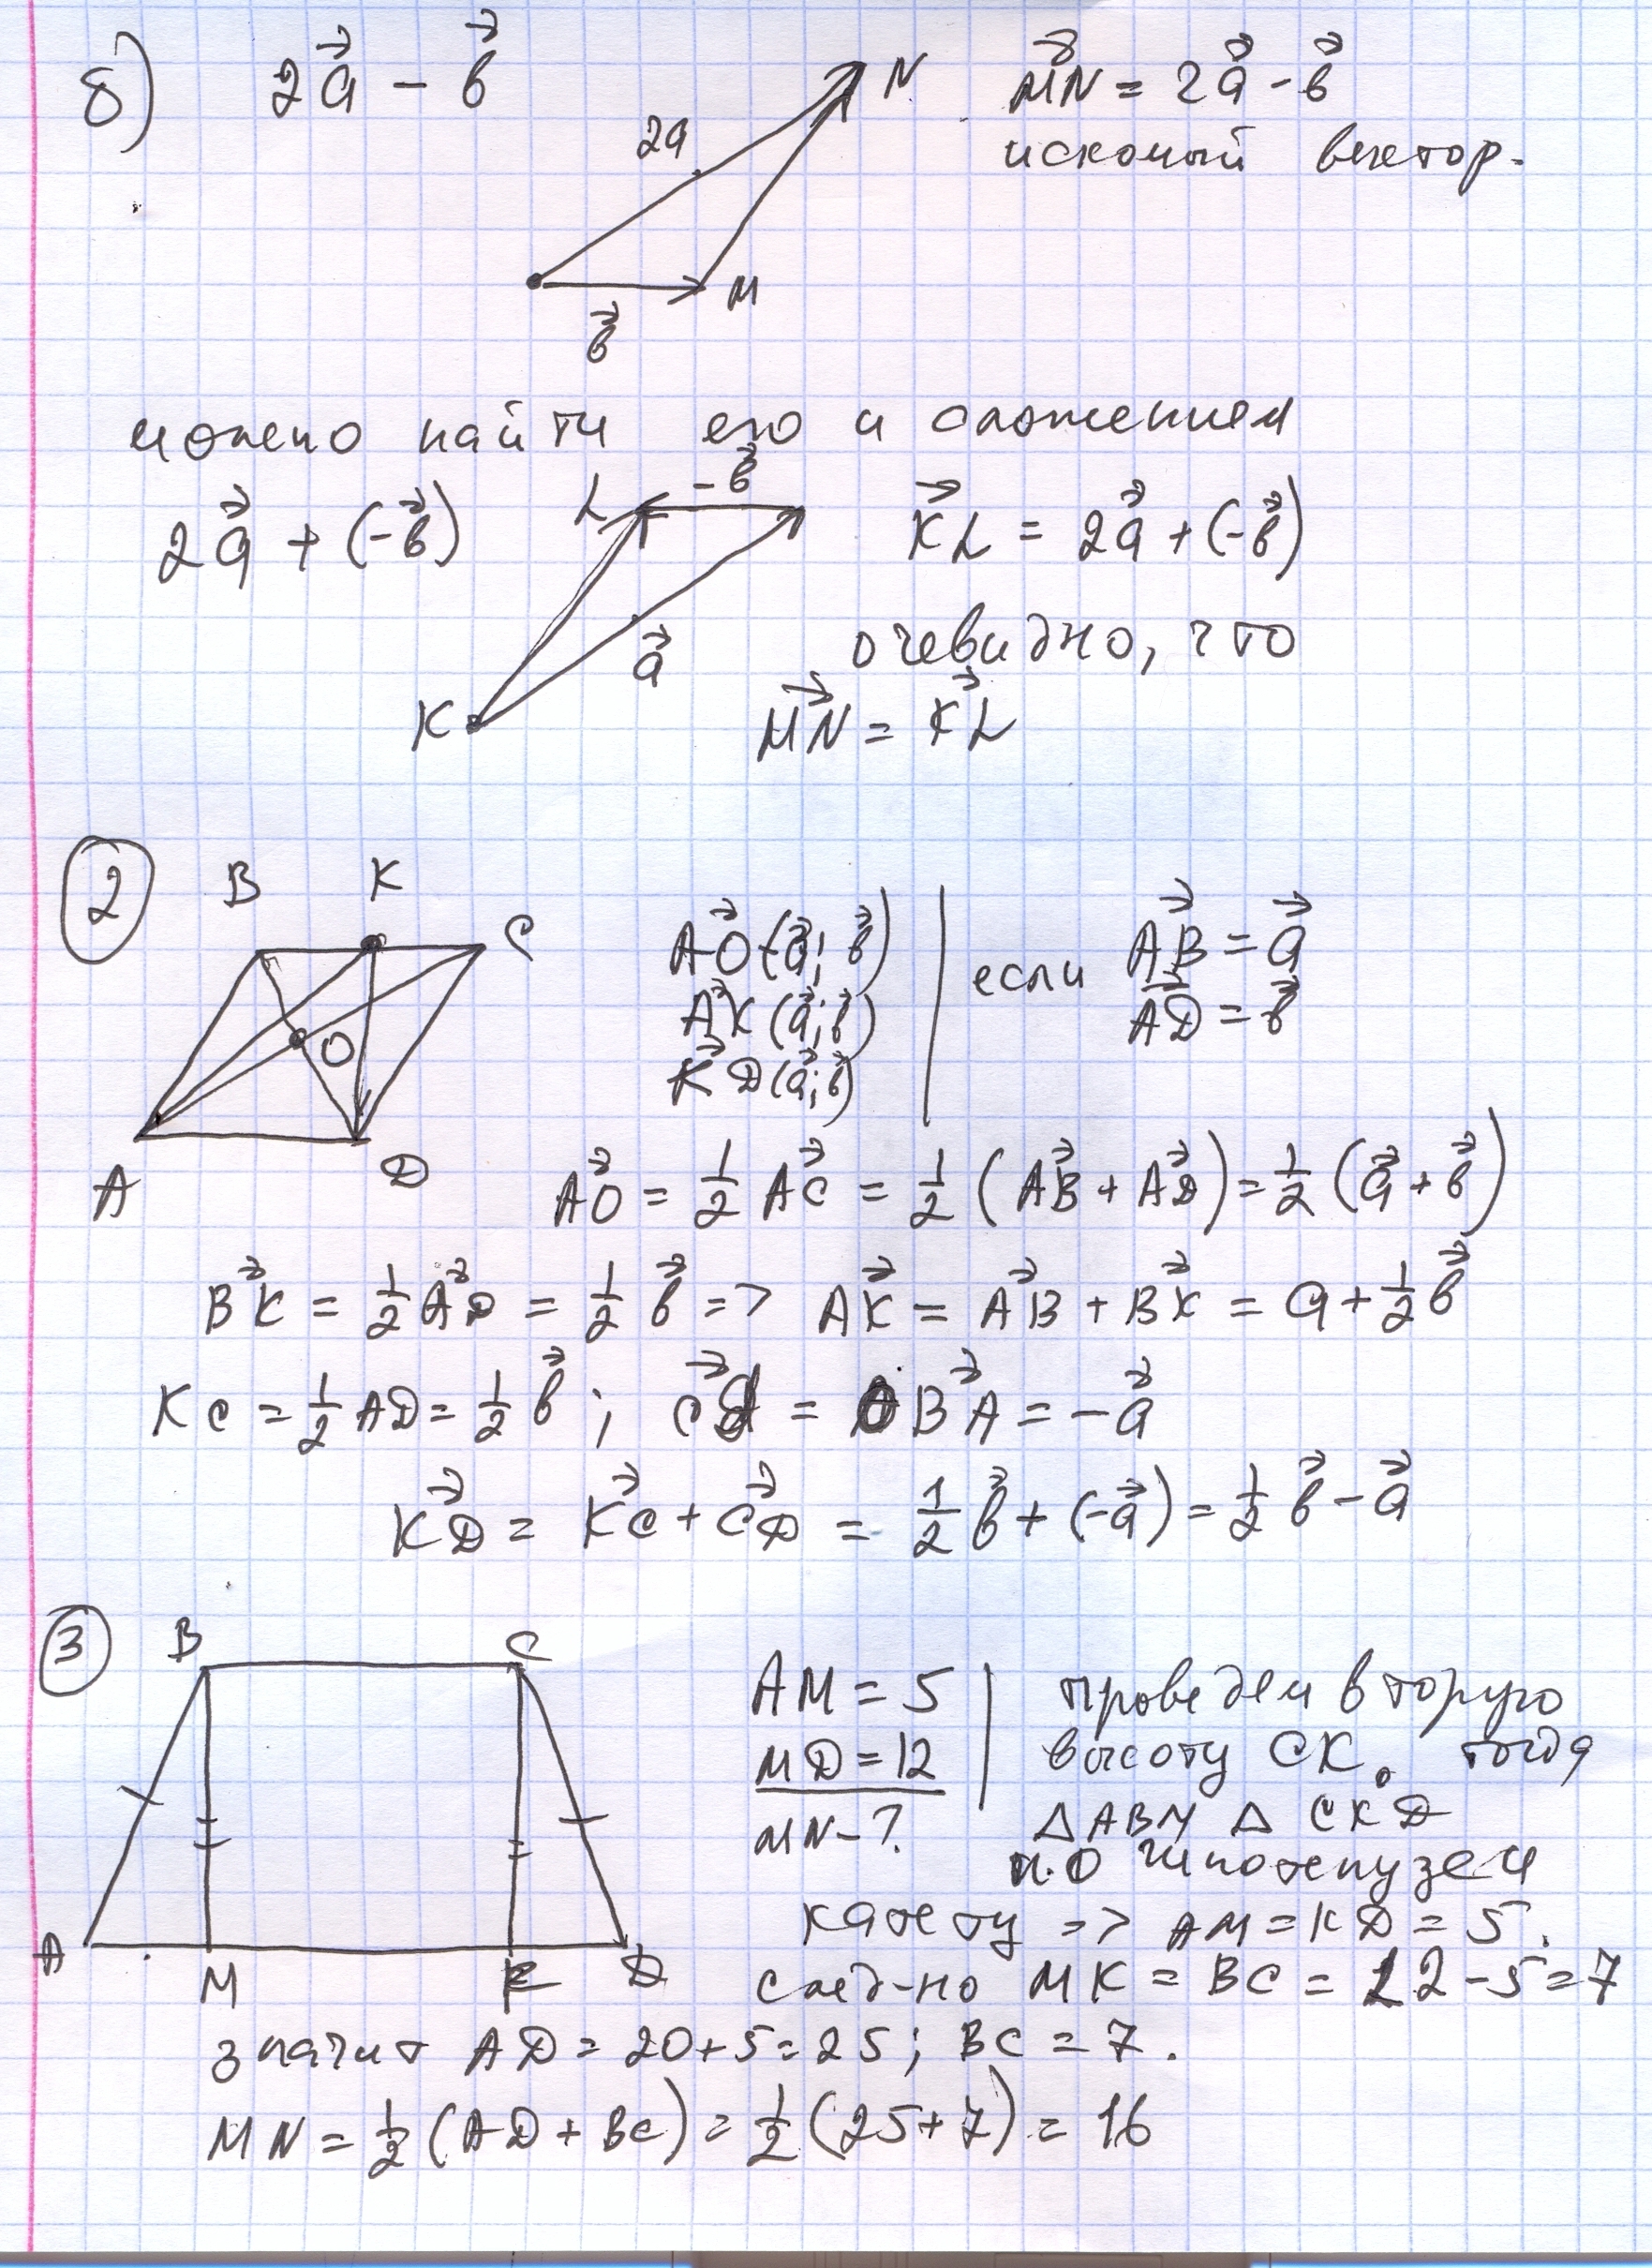 б) 2a⃗ - b⃗
2a
N
MN⃗ = 2a⃗ - b⃗
искомый вектор.
M
b⃗
можно найти его и сложением
2a⃗ + (-b⃗)
L
-b⃗
KL⃗ = 2a⃗ + (-b⃗)
a⃗
очевидно, что
K
MN⃗ = KL⃗
2
B K C
O
A D
AO⃗ (a⃗; b⃗)
AK⃗ (a⃗; b⃗)
KD⃗ (a⃗; b⃗)
если AB⃗ = a⃗
AD⃗ = b⃗
AO⃗ = 1/2 AC⃗ = 1/2 (AB⃗ + AD⃗) = 1/2 (a⃗ + b⃗)
BK⃗ = 1/2 AD⃗ = 1/2 b⃗ => AK⃗ = AB⃗ + BK⃗ = a + 1/2 b⃗
KC = 1/2 AD = 1/2 b⃗ ; CD⃗ = BA⃗ = -a⃗
KD⃗ = KC⃗ + CD⃗ = 1/2 b⃗ + (-a⃗) = 1/2 b⃗ - a⃗
3
B C
A M K D
AM = 5
MD = 12
MN - ?
проведем вторую
высоту CK. тогда
△ABM △CKD
по гипотенузе и
катету => AM = KD = 5.
след-но MK = BC = 12 - 5 = 7
значит AD = 20 + 5 = 25; BC = 7.
MN = 1/2 (AD + BC) = 1/2 (25 + 7) = 16